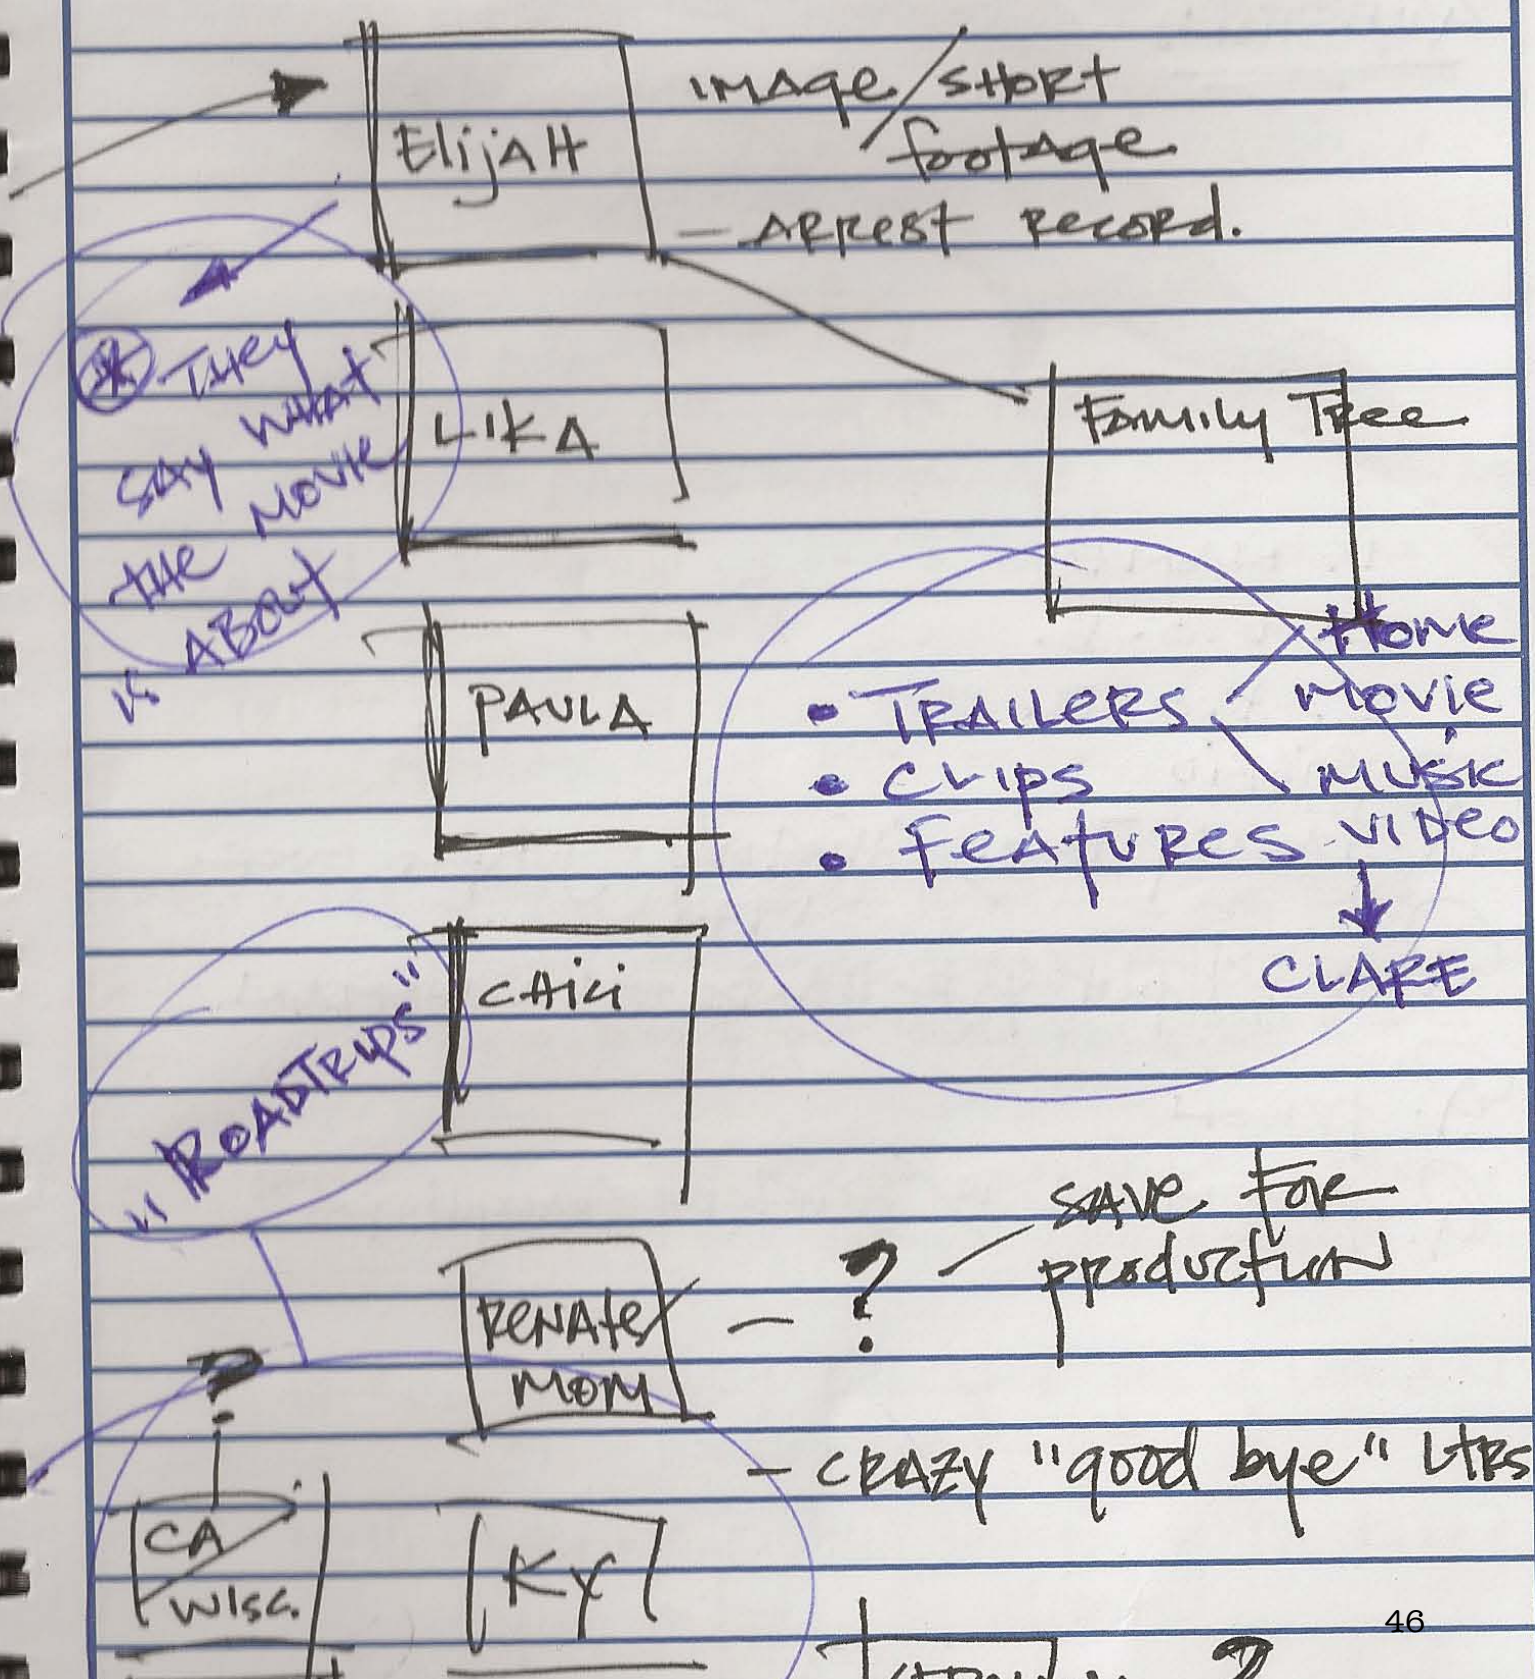 ELIJAH
IMAGE/SHORT
FOOTAGE
- ARREST RECORD.
* THEY
SAY WHAT
THE MOVIE
IS ABOUT
LIKA
FAMILY TREE
PAULA
• TRAILERS
• CLIPS
• FEATURES
HOME
MOVIE
MUSIC
VIDEO
CLARE
"ROADTRIPS"
CHICI
RENATE/
MOM
- ?
SAVE FOR
PRODUCTION
- CRAZY "good bye" LTRS
?
CA/
WISC.
KY
?
46